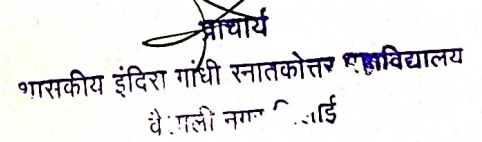 प्राचार्य
शासकीय इंदिरा गांधी स्नातकोत्तर महाविद्यालय
वैशाली नगर